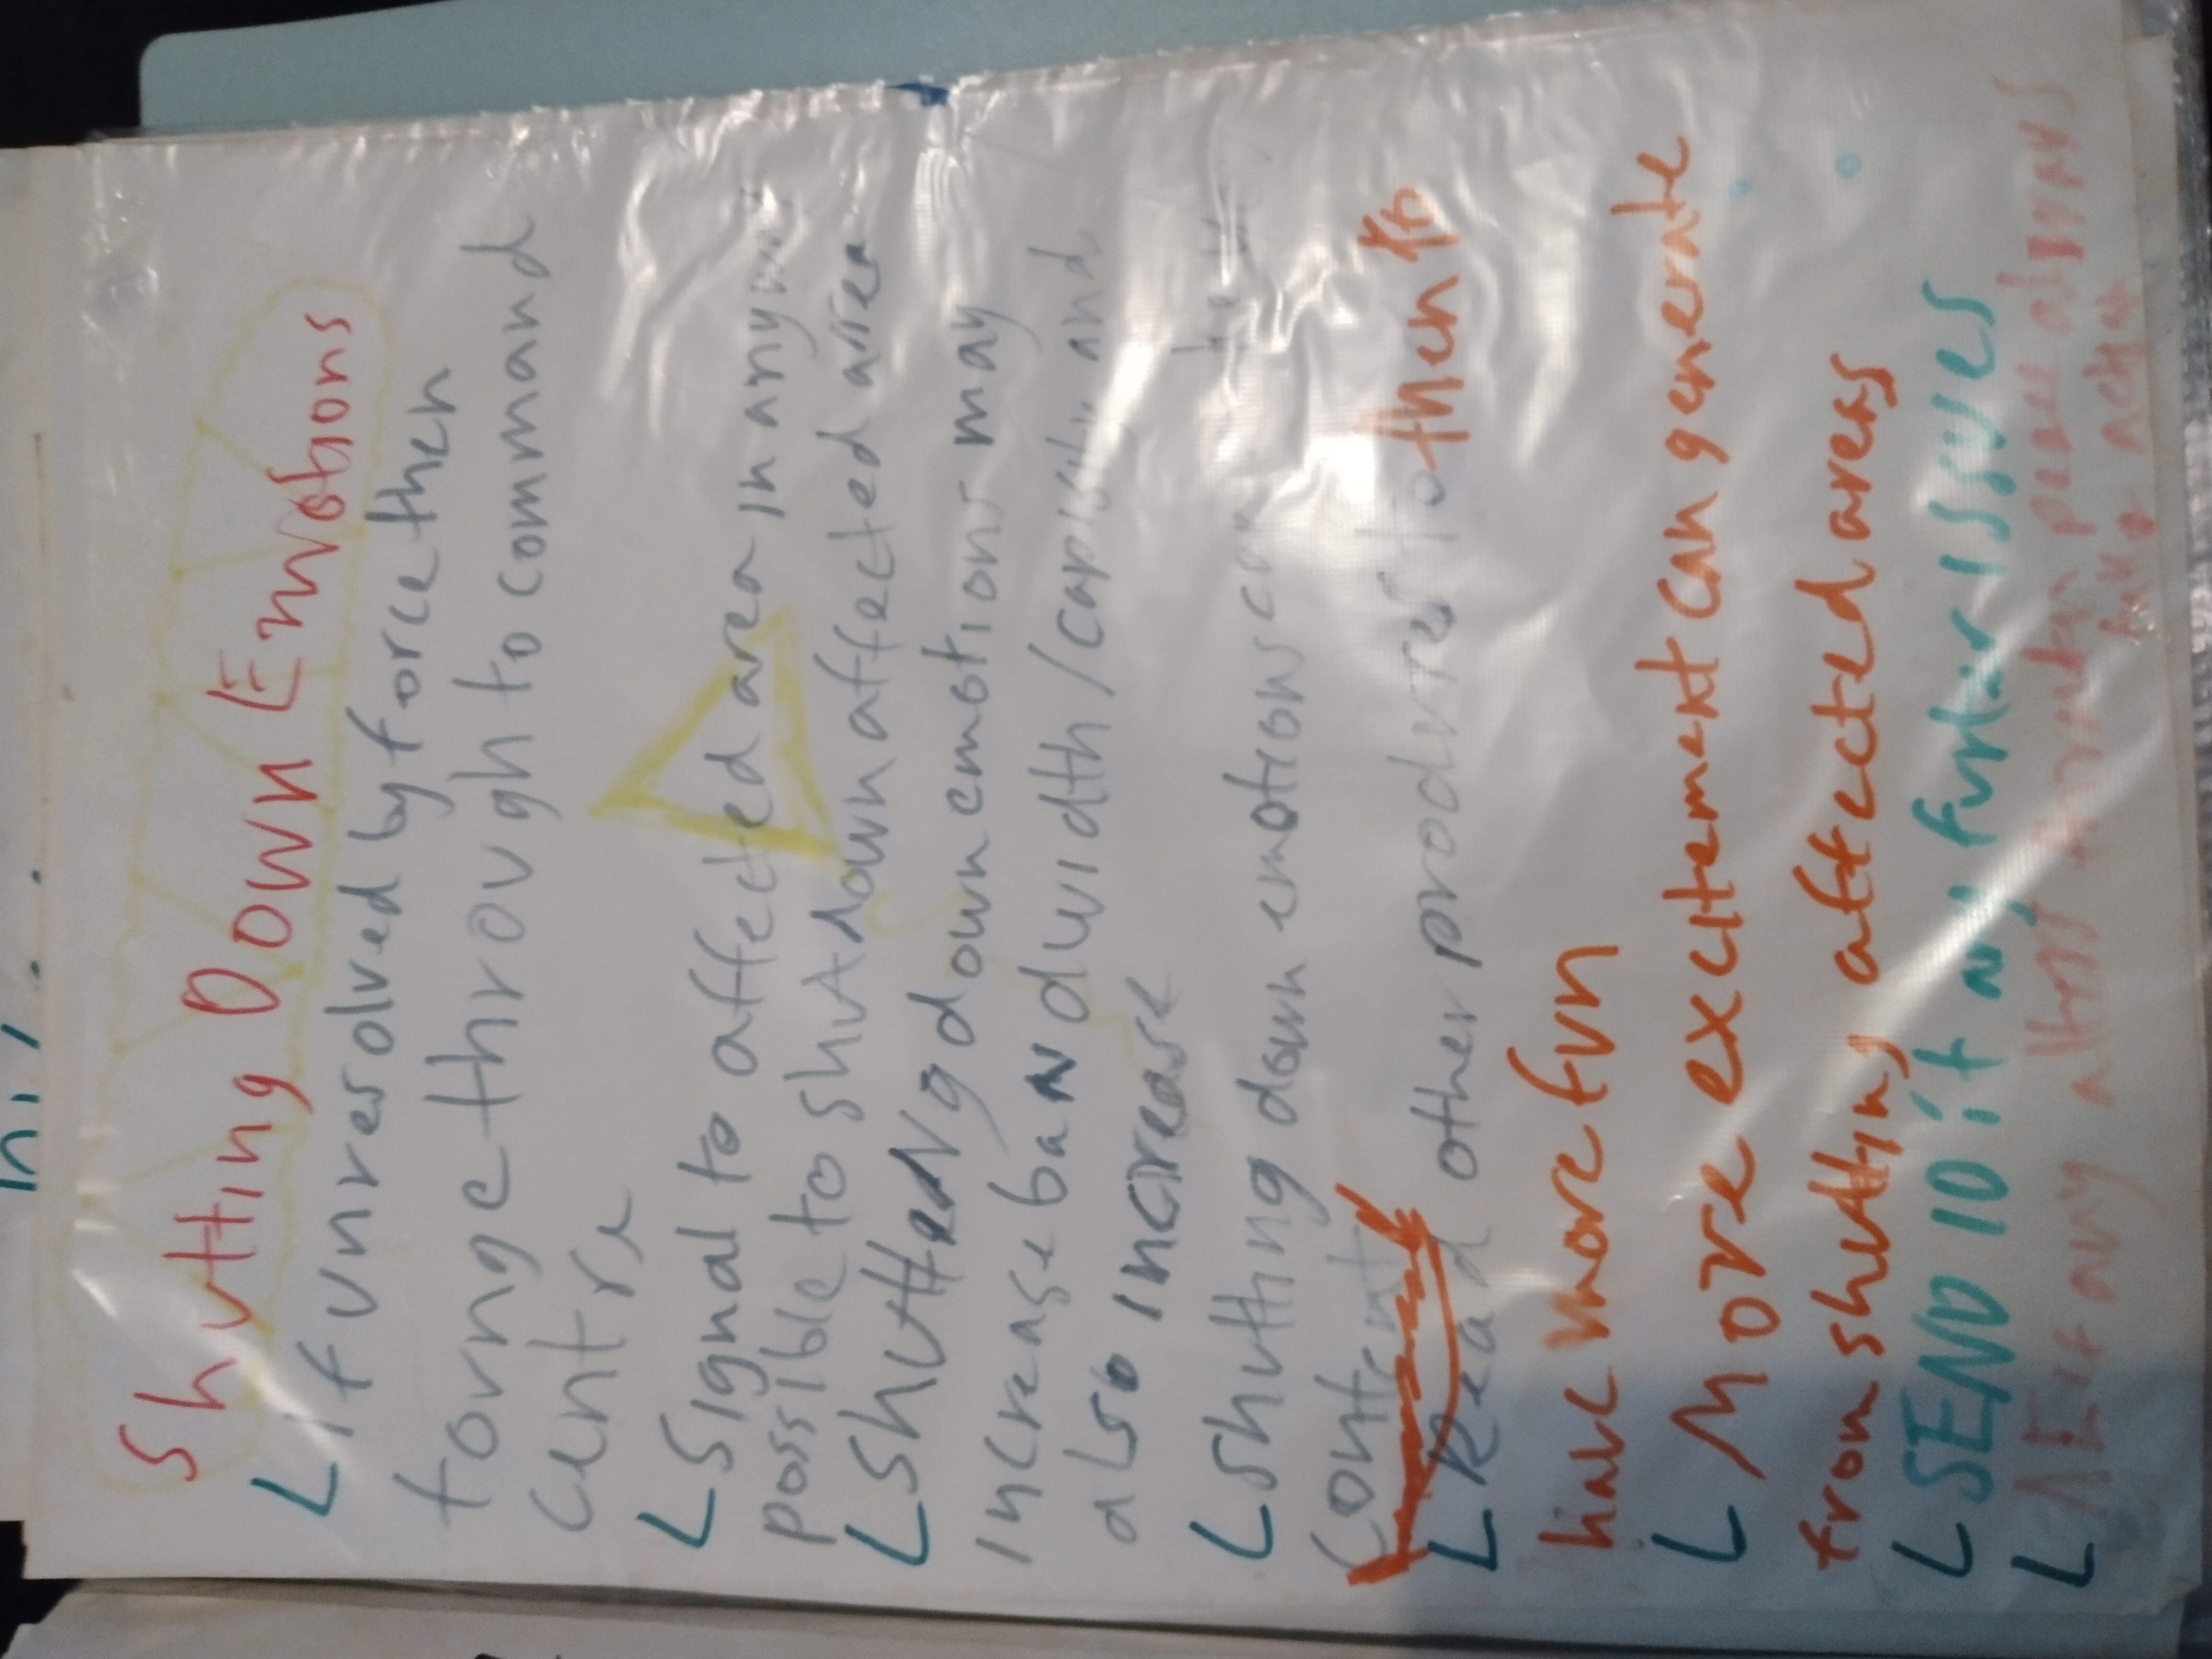 Shutting Down Emotions
If unresolved by force then
tounge through to command
centre
Signal to affected area in any way
possible to shutdown affected area
Shutting down emotions may
increase bandwidth / and
also increase
shutting down emotions can
content
Read other produres to then to
have more fun
More excitement can generate
from shutting affected ares
SEND 10 if ny furter issues
if any